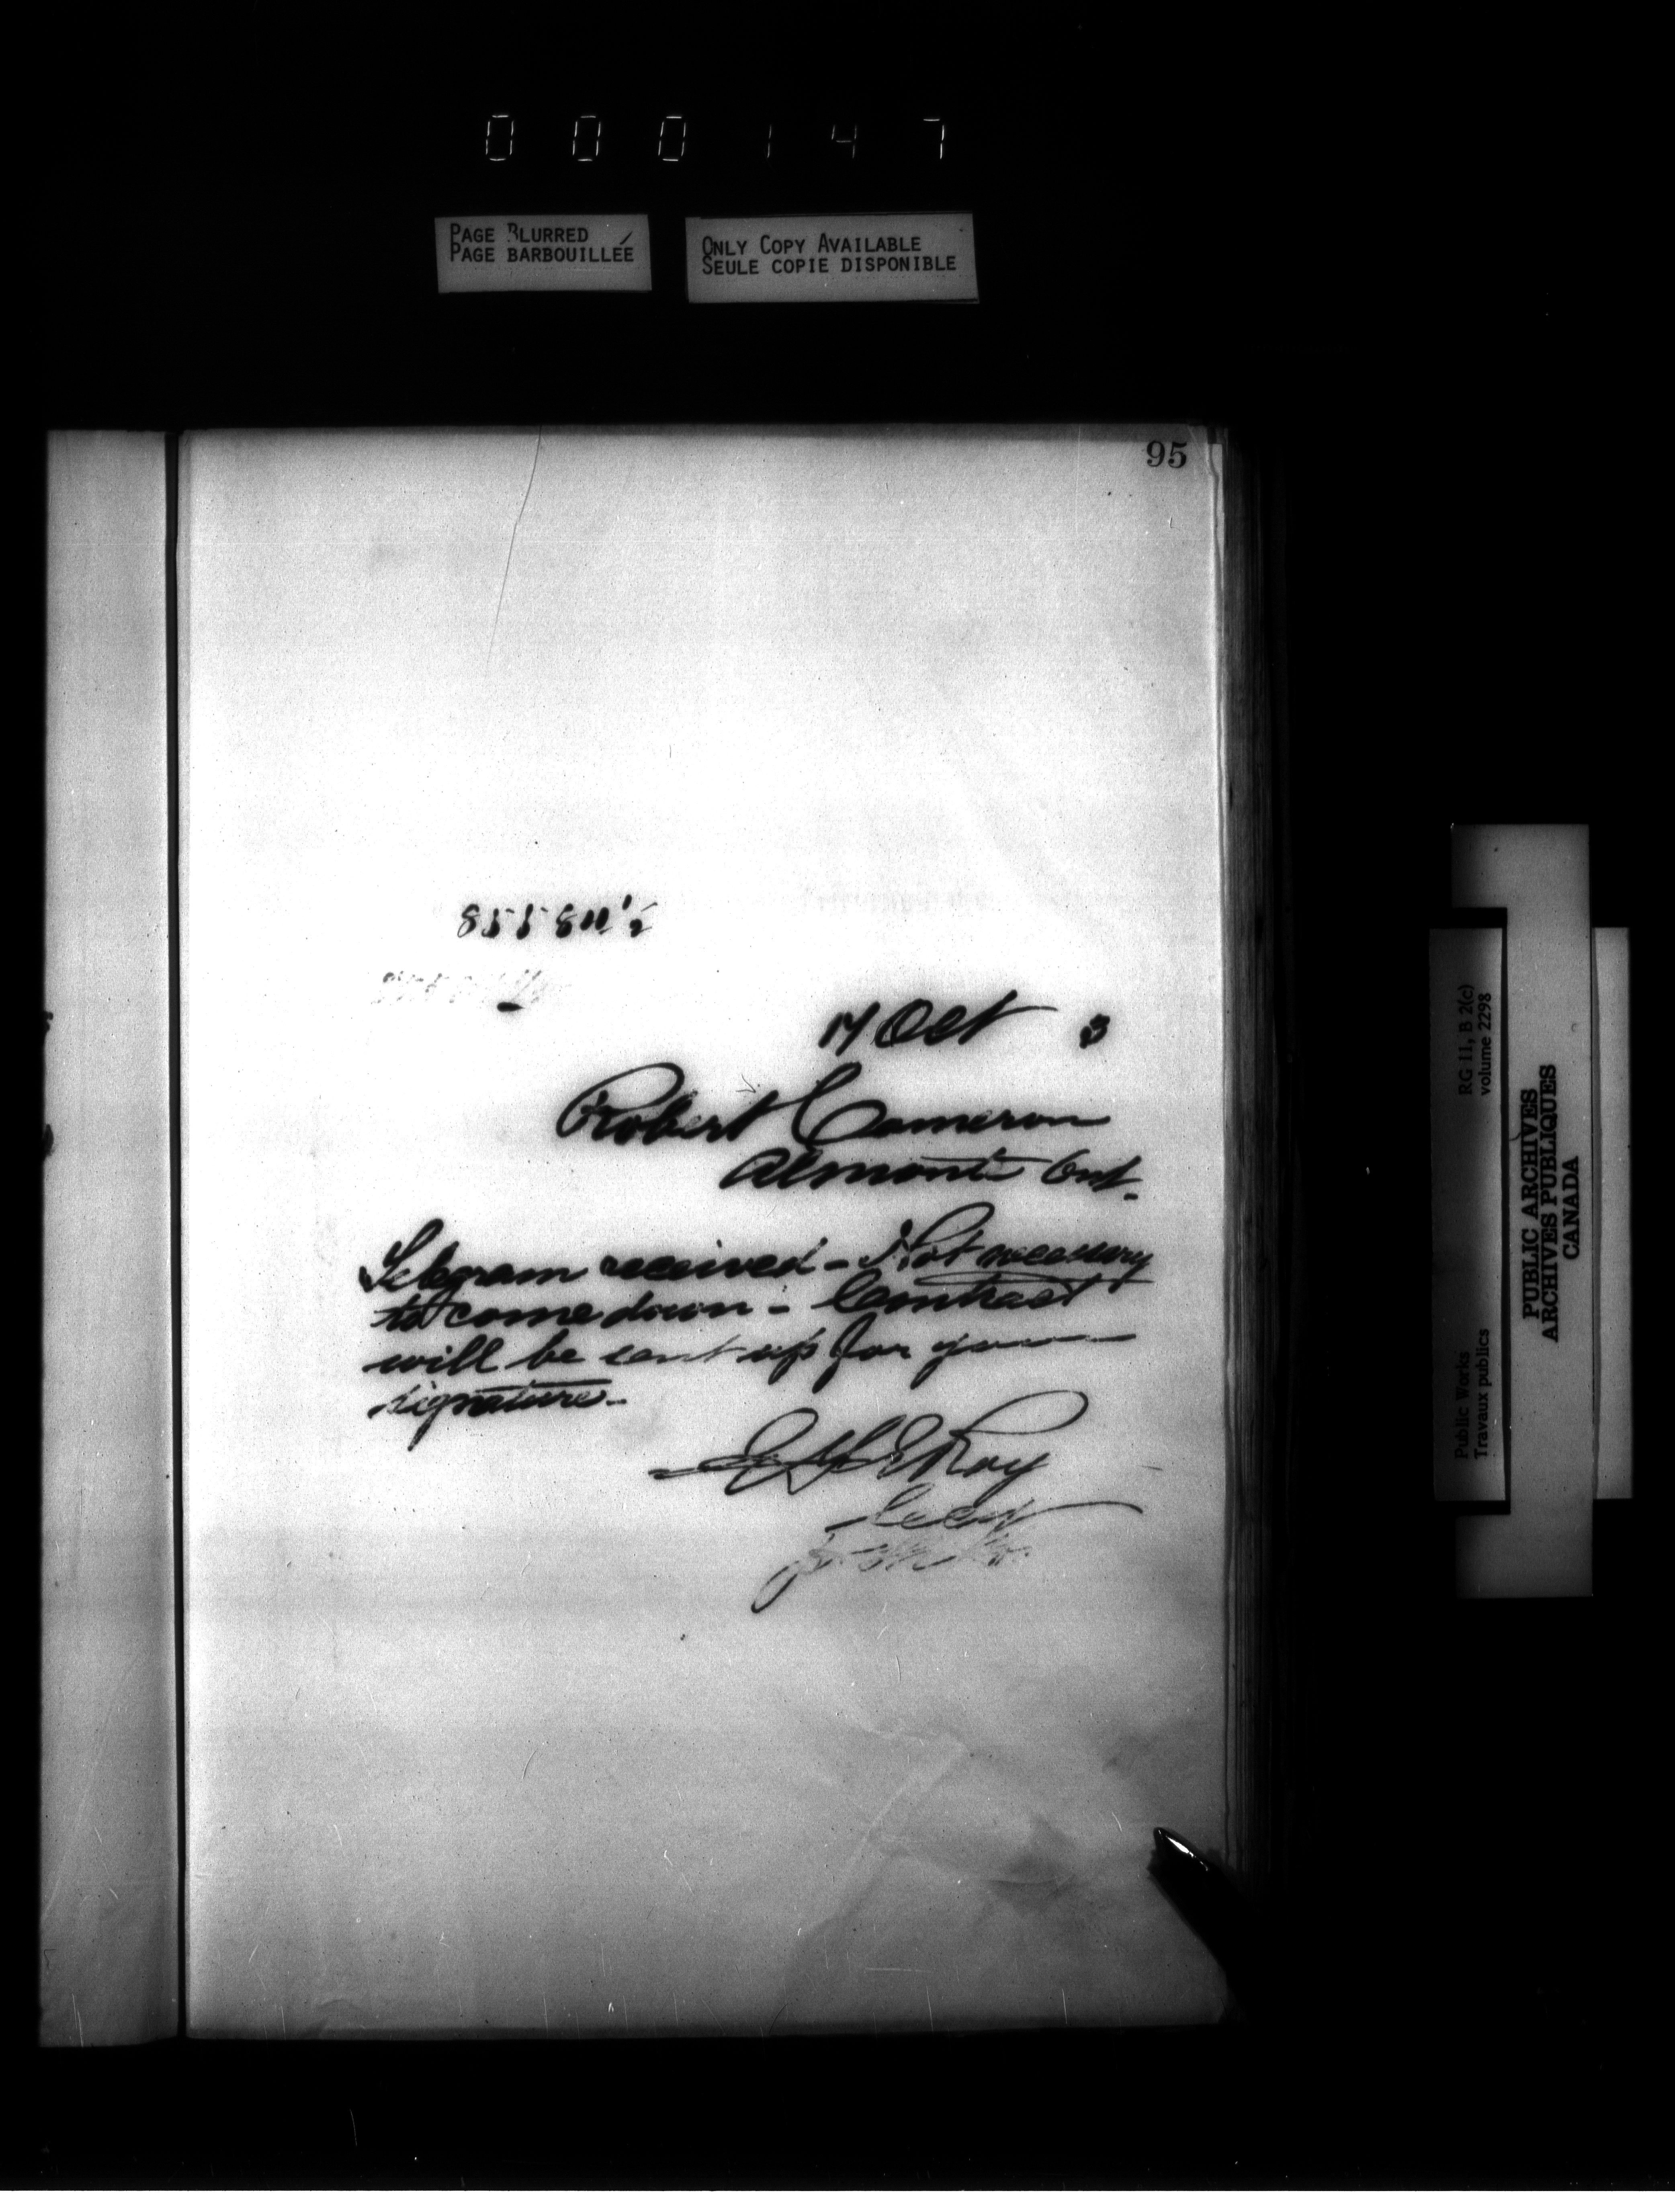 000147
PAGE BLURRED
PAGE BARBOUILLÉE
ONLY COPY AVAILABLE
SEULE COPIE DISPONIBLE
95
17 Oct 3
Robert Cameron
Almonte Ont.
Telegram received - Not necessary
to come down - Contract
will be sent up for your
signature.
Roy
Secy
RG 11, B 2(c)
volume 2298
Public Works
Travaux publics
PUBLIC ARCHIVES
ARCHIVES PUBLIQUES
CANADA